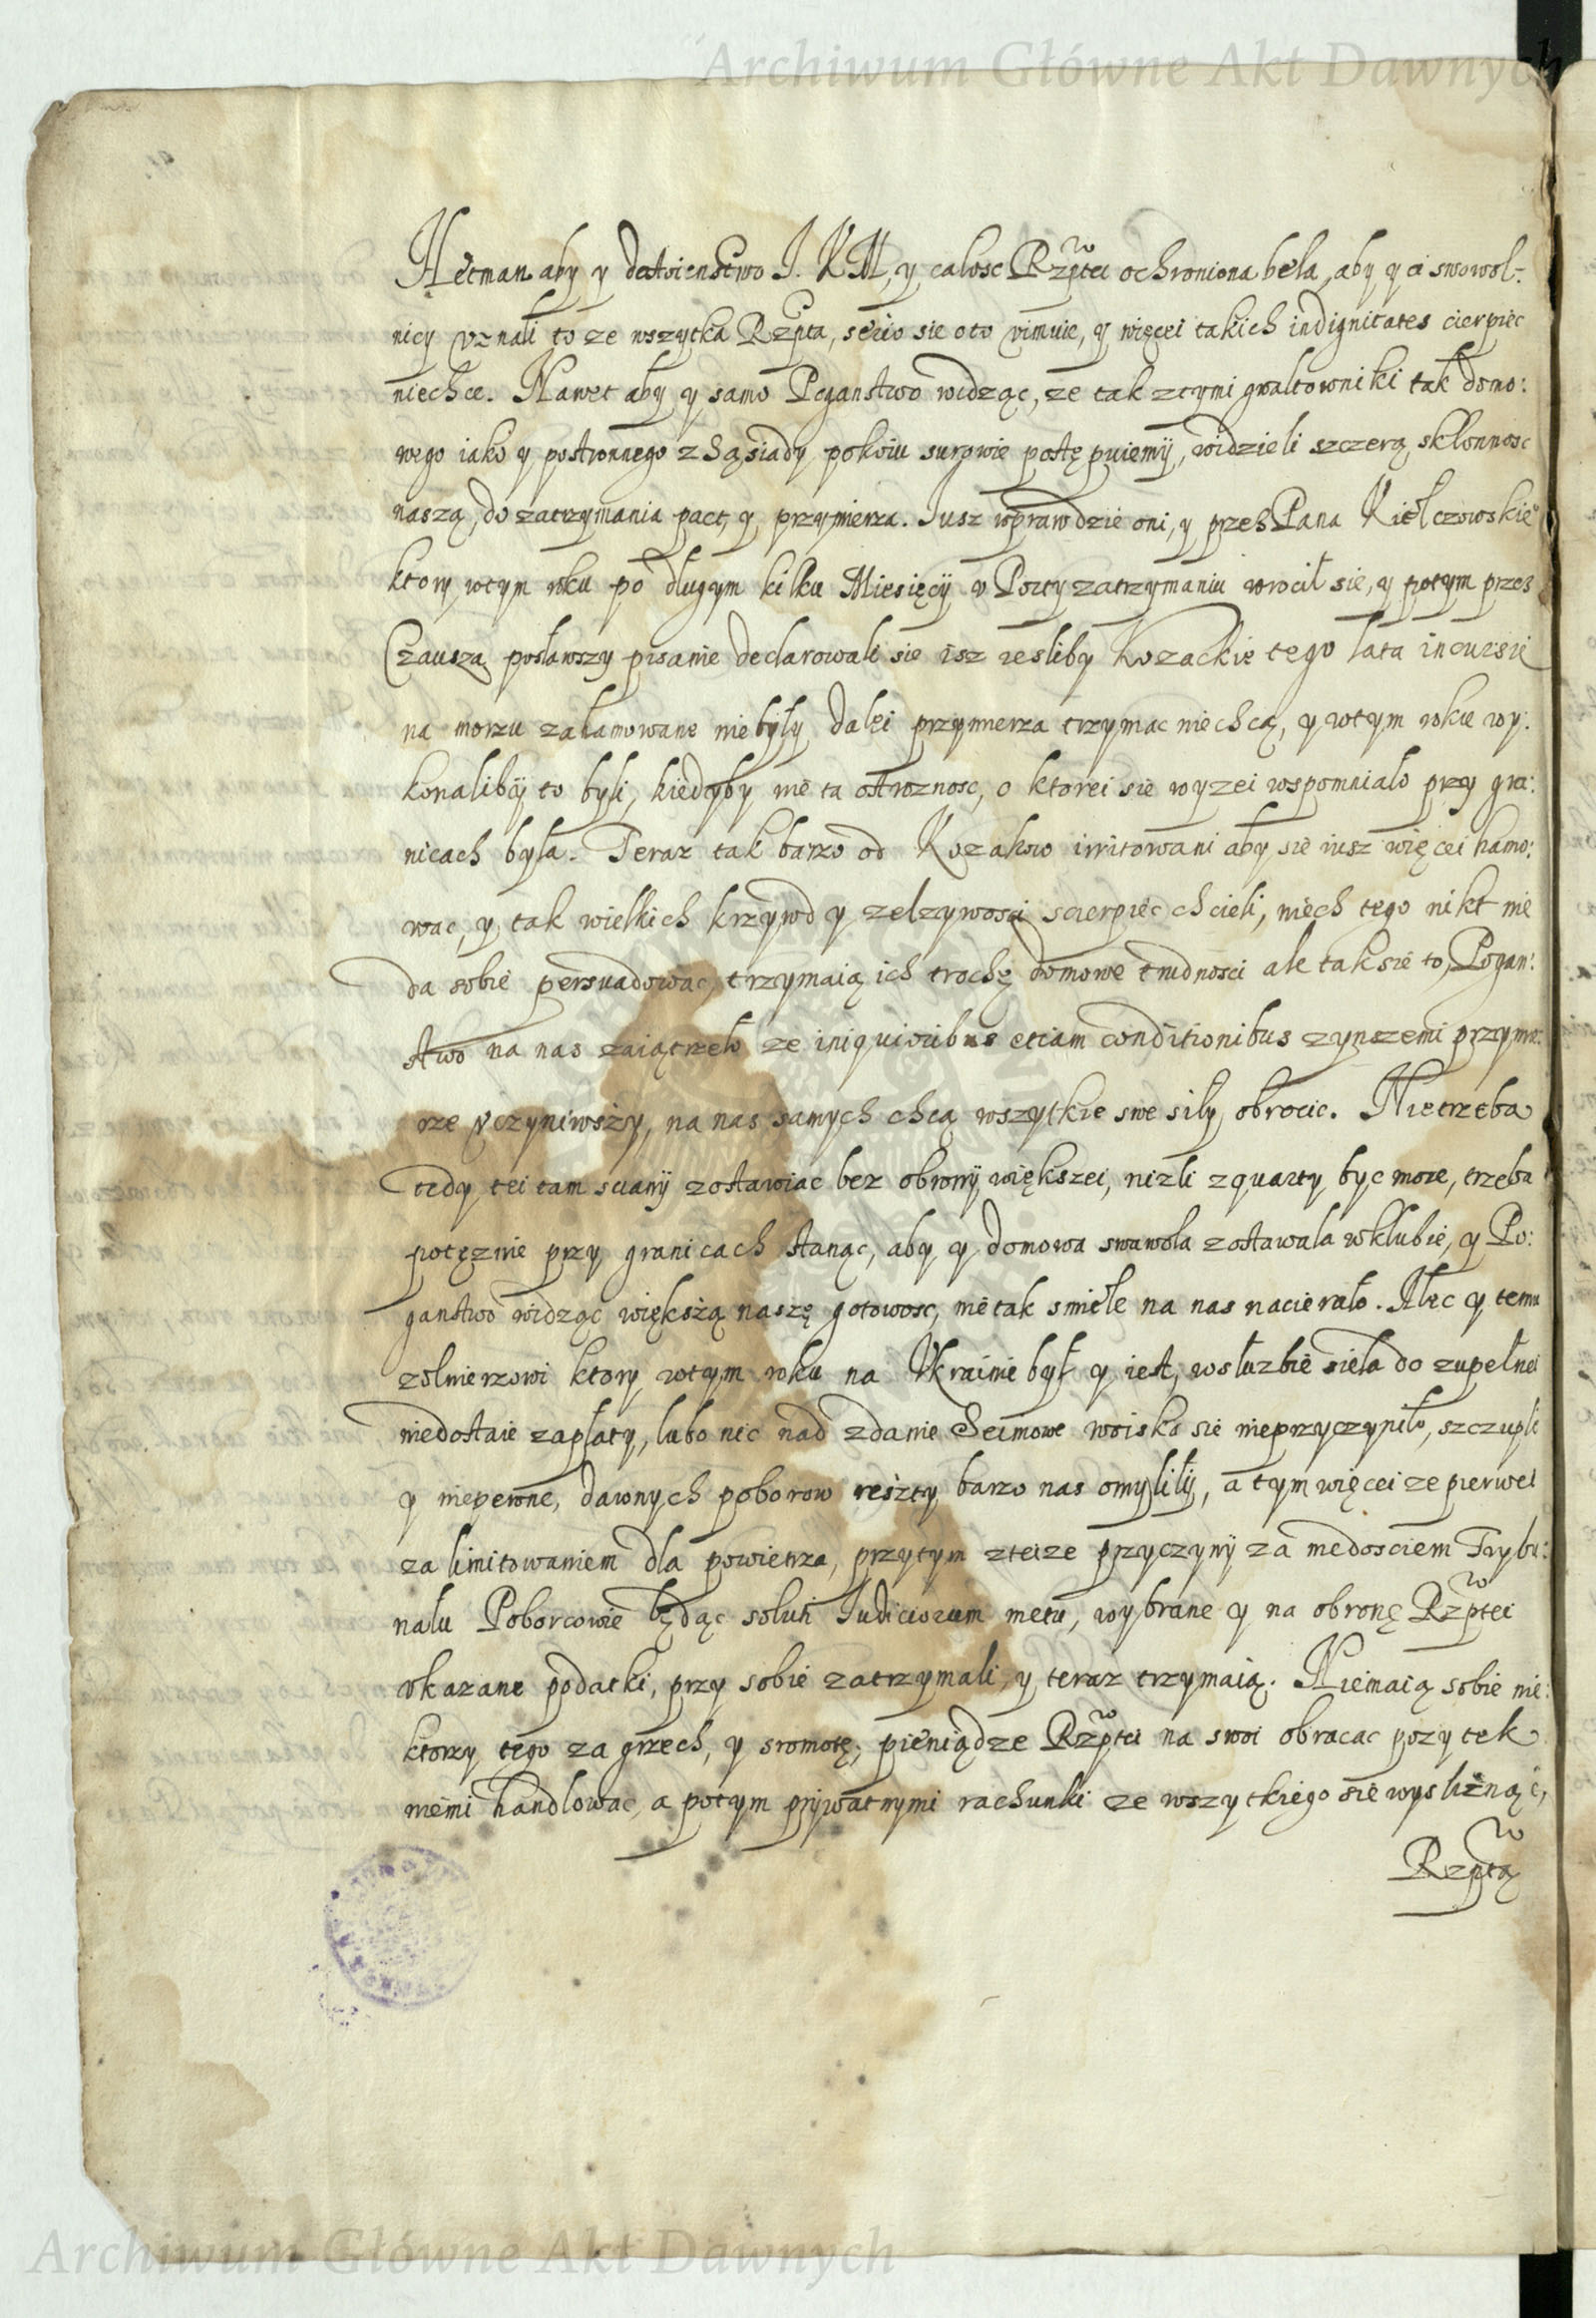 Archiwum Główne Akt Dawnych
Hetman aby y dostoienstwo J. K M, y całosc Rzptei ochroniona beła, aby y ci swowol-
nicy vznali to ze wszytka Rzpta, serio sie oto vimuie, y więcei takich indignitates cierpiec
niechce. Nawet aby y samo Poganstwo widząc, ze tak ztymi gwałtowniki tak domo:
wego iako y postronnego z Sąsiady pokoiu surowie postępuiemÿ, widzieli szczerą skłonnosc
naszą, do zatrzymania pact, y przymierza. Iusz wprawdzie oni, y przes Pana Kiełczowskie°
ktory wtym roku po długym kilku Miesięcÿ v Porty zatrzymaniu wrocił sie, y potym przes
Czausza posławszy pisanie declarowali sie isz iesliby Kozackie tego lata incursie
na morzu zatamowane niebyły, dalei przymierza trzymac niechcą, y wtym roku wy:
konalibÿ to byli, kiedyby nie ta ostroznosc, o ktorei sie wyzei wspomniało przy gra:
nicach była. Teraz tak barzo od Kozakow irritowani aby sie iusz więcei hamo:
wac, y tak wielkich krzywd y zelzywosci scierpiec chcieli, niech tego nikt nie
da sobie persuadowac, trzymaią ich trochę domowe trudnosci ale tak sie to Pogan:
stwo na nas zaiątrzeło ze iniquioribus etiam conditionibus zynszemi przymie:
rze vczyniwszy, na nas samych chcą wszytkie swe siły obrocic. Nietrzeba
tedy tei tam scianÿ zostawiac bez obronÿ większei, nizli zquarty byc moze, trzeba
potęznie przy granicach stanąc, aby y domowa swawola zostawala wklubie, y Po:
ganstwo widząc większą naszę gotowosc, nie tak smiele na nas nacierało. Alec y temu
zołnierzowi ktory wtym roku na Vkrainie był y iest, wsłuzbie sieła do zupełnei
niedostaie zapłaty, lubo nic nad zdanie Seimowe woisko sie nieprzyczyniło, szczupłe
y niepewne, dawnych poborow reszty barzo nas omyliłÿ, a tym więcei ze pierwei
za limitowaniem dla powietrza, przytym zteize przyczynÿ za niedosciem Trybu:
nału Poborcowie będąc soluti Iudiciorum metu, wybrane y na obronę Rzptei
vkazane podatki, przy sobie zatrzymali, y teraz trzymaią. Niemaią sobie nie:
ktorzy tego za grzech, y sromotę, pieniądze Rzptei na swoi obracac pozytek
niemi handlowac, a potym prÿwatnymi rachunki ze wszytkiego sie wysliznąc,
Rzptą
Archiwum Główne Akt Dawnych